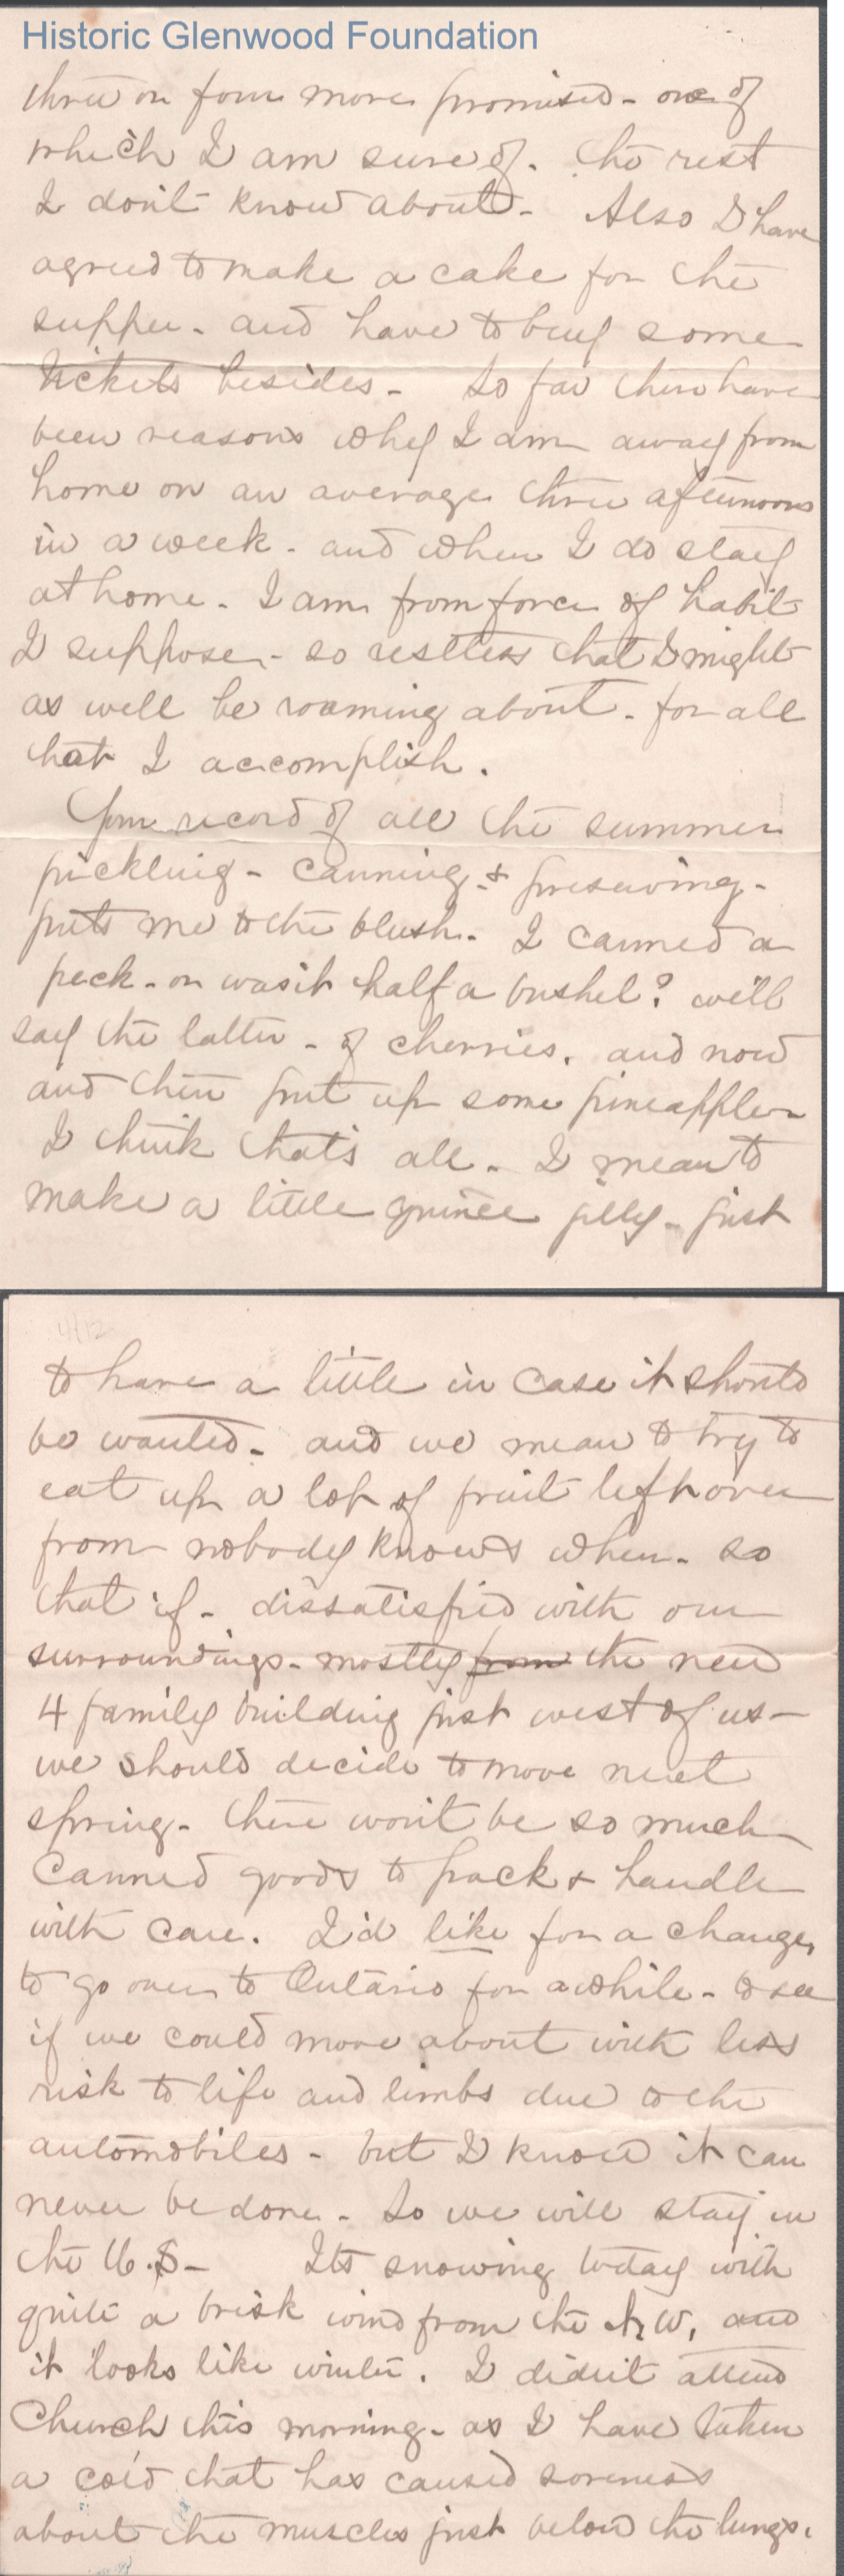 Historic Glenwood Foundation
three or four more promised - one of
which I am sure of. the rest
I don't know about - Also I have
agreed to make a cake for the
supper - and have to buy some
tickets besides - So far there have
been reasons why I am away from
home on an average three afternoons
in a week - and when I do stay
at home - I am from force of habit
I suppose - so restless that I might
as well be roaming about - for all
that I accomplish.
Your record of all the summer
pickling - canning & preserving -
puts me to the blush - I canned a
peck - or was it half a bushel? we'll
say the latter - of cherries, and now
and then put up some pineapple -
I think that's all - I mean to
make a little quince jelly - just
4/12
to have a little in case it should
be wanted - and we mean to try to
eat up a lot of fruit left over
from nobody knows when - so
that if - dissatisfied with our
surroundings - mostly from the new
4 family building just west of us -
we should decide to move next
spring - there won't be so much
canned goods to pack & handle
with care. I'd like for a change,
to go over to Ontario for awhile - to see
if we could move about with less
risk to life and limbs due to the
automobiles - but I know it can
never be done - So we will stay in
the U.S - Its snowing today with
quite a brisk wind from the N.W, and
it looks like winter. I didn't attend
Church this morning - as I have taken
a cold that has caused soreness
about the muscles just below the lungs.